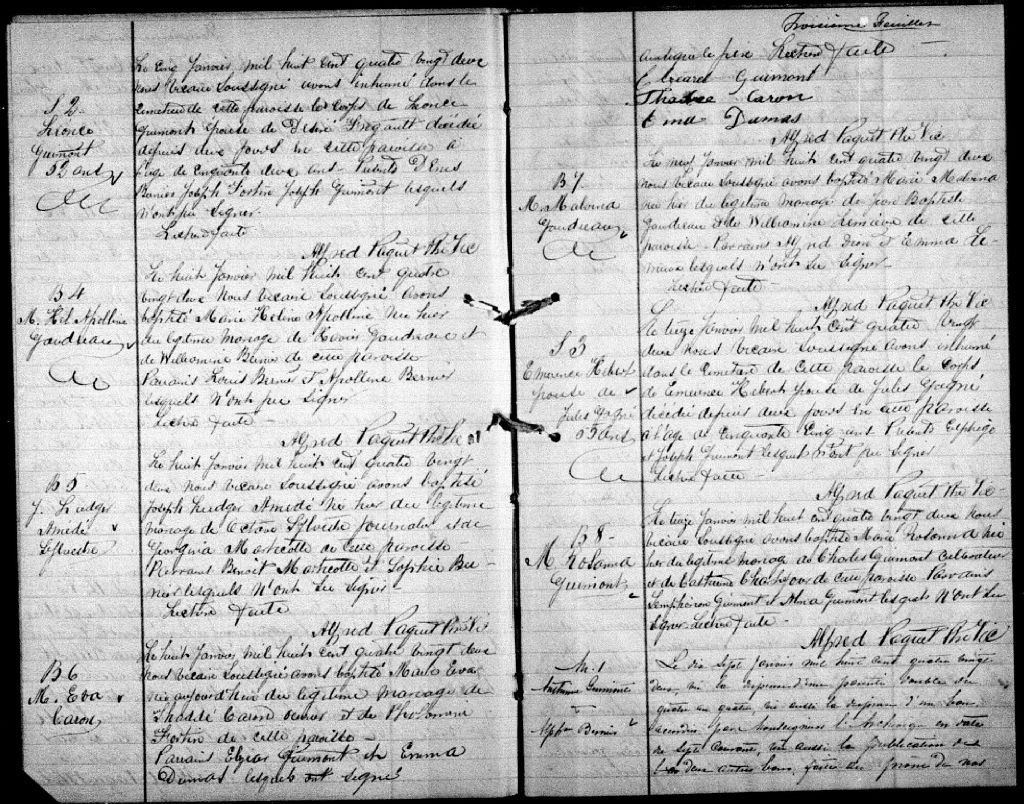 S 2
Léonce
Guimont
52 ans
Le cinq Janvier mil huit cent quatre vingt deux
nous vicaire soussigné avons inhumé dans le
cimetière de cette paroisse le corps de Léonce
Guimont épouse de Désiré décédée
depuis deux jours en cette paroisse à
l'age de cinquante deux ans. Présents Denis
Bernier Joseph Fortin Joseph Guimont lesquels
n'ont pu signer
Lecture faite
Alfred Paquet Ptre Vic
B 4
M. Hél Apolline
Gaudreau
Le huit Janvier mil huit cent quatre
vingt deux nous vicaire soussigné avons
baptisé Marie Hélène Apolline née hier
du légitime mariage de Louis Gaudreau et
de Willeomine Bernier de cette paroisse
Parrains Louis Bernier et Apolline Bernier
lesquels n'ont pu signer
Lecture faite
Alfred Paquet Ptre Vic
B 5
J. Ludger
Amédé
Sylvestre
Le huit Janvier mil huit cent quatre vingt
deux nous vicaire soussigné avons baptisé
Joseph Ludger Amédé né hier du légitime
mariage de Octave Sylvestre Journalier et de
Georgina Marcotte de cette paroisse
Parrains Benoit Marcotte et Sophie Ber-
nier lesquels n'ont su signer
Lecture faite
Alfred Paquet Ptre Vic
B 6
M. Eva
Caron
Le huit Janvier mil huit cent quatre vingt deux
nous vicaire soussigné avons baptisé Marie Eva
née aujourd'hui du légitime mariage de
Thaddé Caron et de Philomène
Fortin de cette paroisse
Parrains Elzéar Guimont et Emma
Dumas lesquels ont signé
Troisième Feuillet
le père Lecture faite
Elzéard Guimont
Thadée Caron
Ema Dumas
Alfred Paquet Ptre Vic
B 7
M. Malvina
Gaudreau
Le neuf Janvier mil huit cent quatre vingt deux
nous vicaire soussigné avons baptisé Marie Malvina
née hier du légitime mariage de Jean Baptiste
Gaudreau et de Willeomine de cette
paroisse Parrains Alfred et Emma Le-
mieux lesquels n'ont su signer
Lecture faite
Alfred Paquet Ptre Vic
S 3
Emerence Hébert
épouse de
Jules Gagné
55 ans
Le treize Janvier mil huit cent quatre vingt
deux nous vicaire soussigné avons inhumé
dans le cimetière de cette paroisse le corps
de Emerence Hébert épouse de Jules Gagné
décédée depuis deux jours en cette paroisse
à l'age de cinquante cinq ans Présents Elphége
et Joseph Guimont lesquels n'ont pu signer
Lecture faite
Alfred Paquet Ptre Vic
B 8
M. Rosanna
Guimont
Le treize Janvier mil huit cent quatre vingt deux nous
vicaire soussigné avons baptisé Marie Rosanna née
hier du légitime mariage de Charles Guimont Cultivateur
et de Catherine de cette paroisse Parrains
Guimont et Alma Guimont lesquels n'ont su
signer Lecture faite
Alfred Paquet Ptre Vic
M. 1
&
Bernier
Le dix sept Janvier mil huit cent quatre vingt
deux, vu la dispense d'une parenté double du
quatre au quatre, vu aussi la dispense d'un ban
accordée par Monseigneur l'Archevêque en date
du sept courant, vu aussi la publication de
deux autres bans, faite au prône de nos